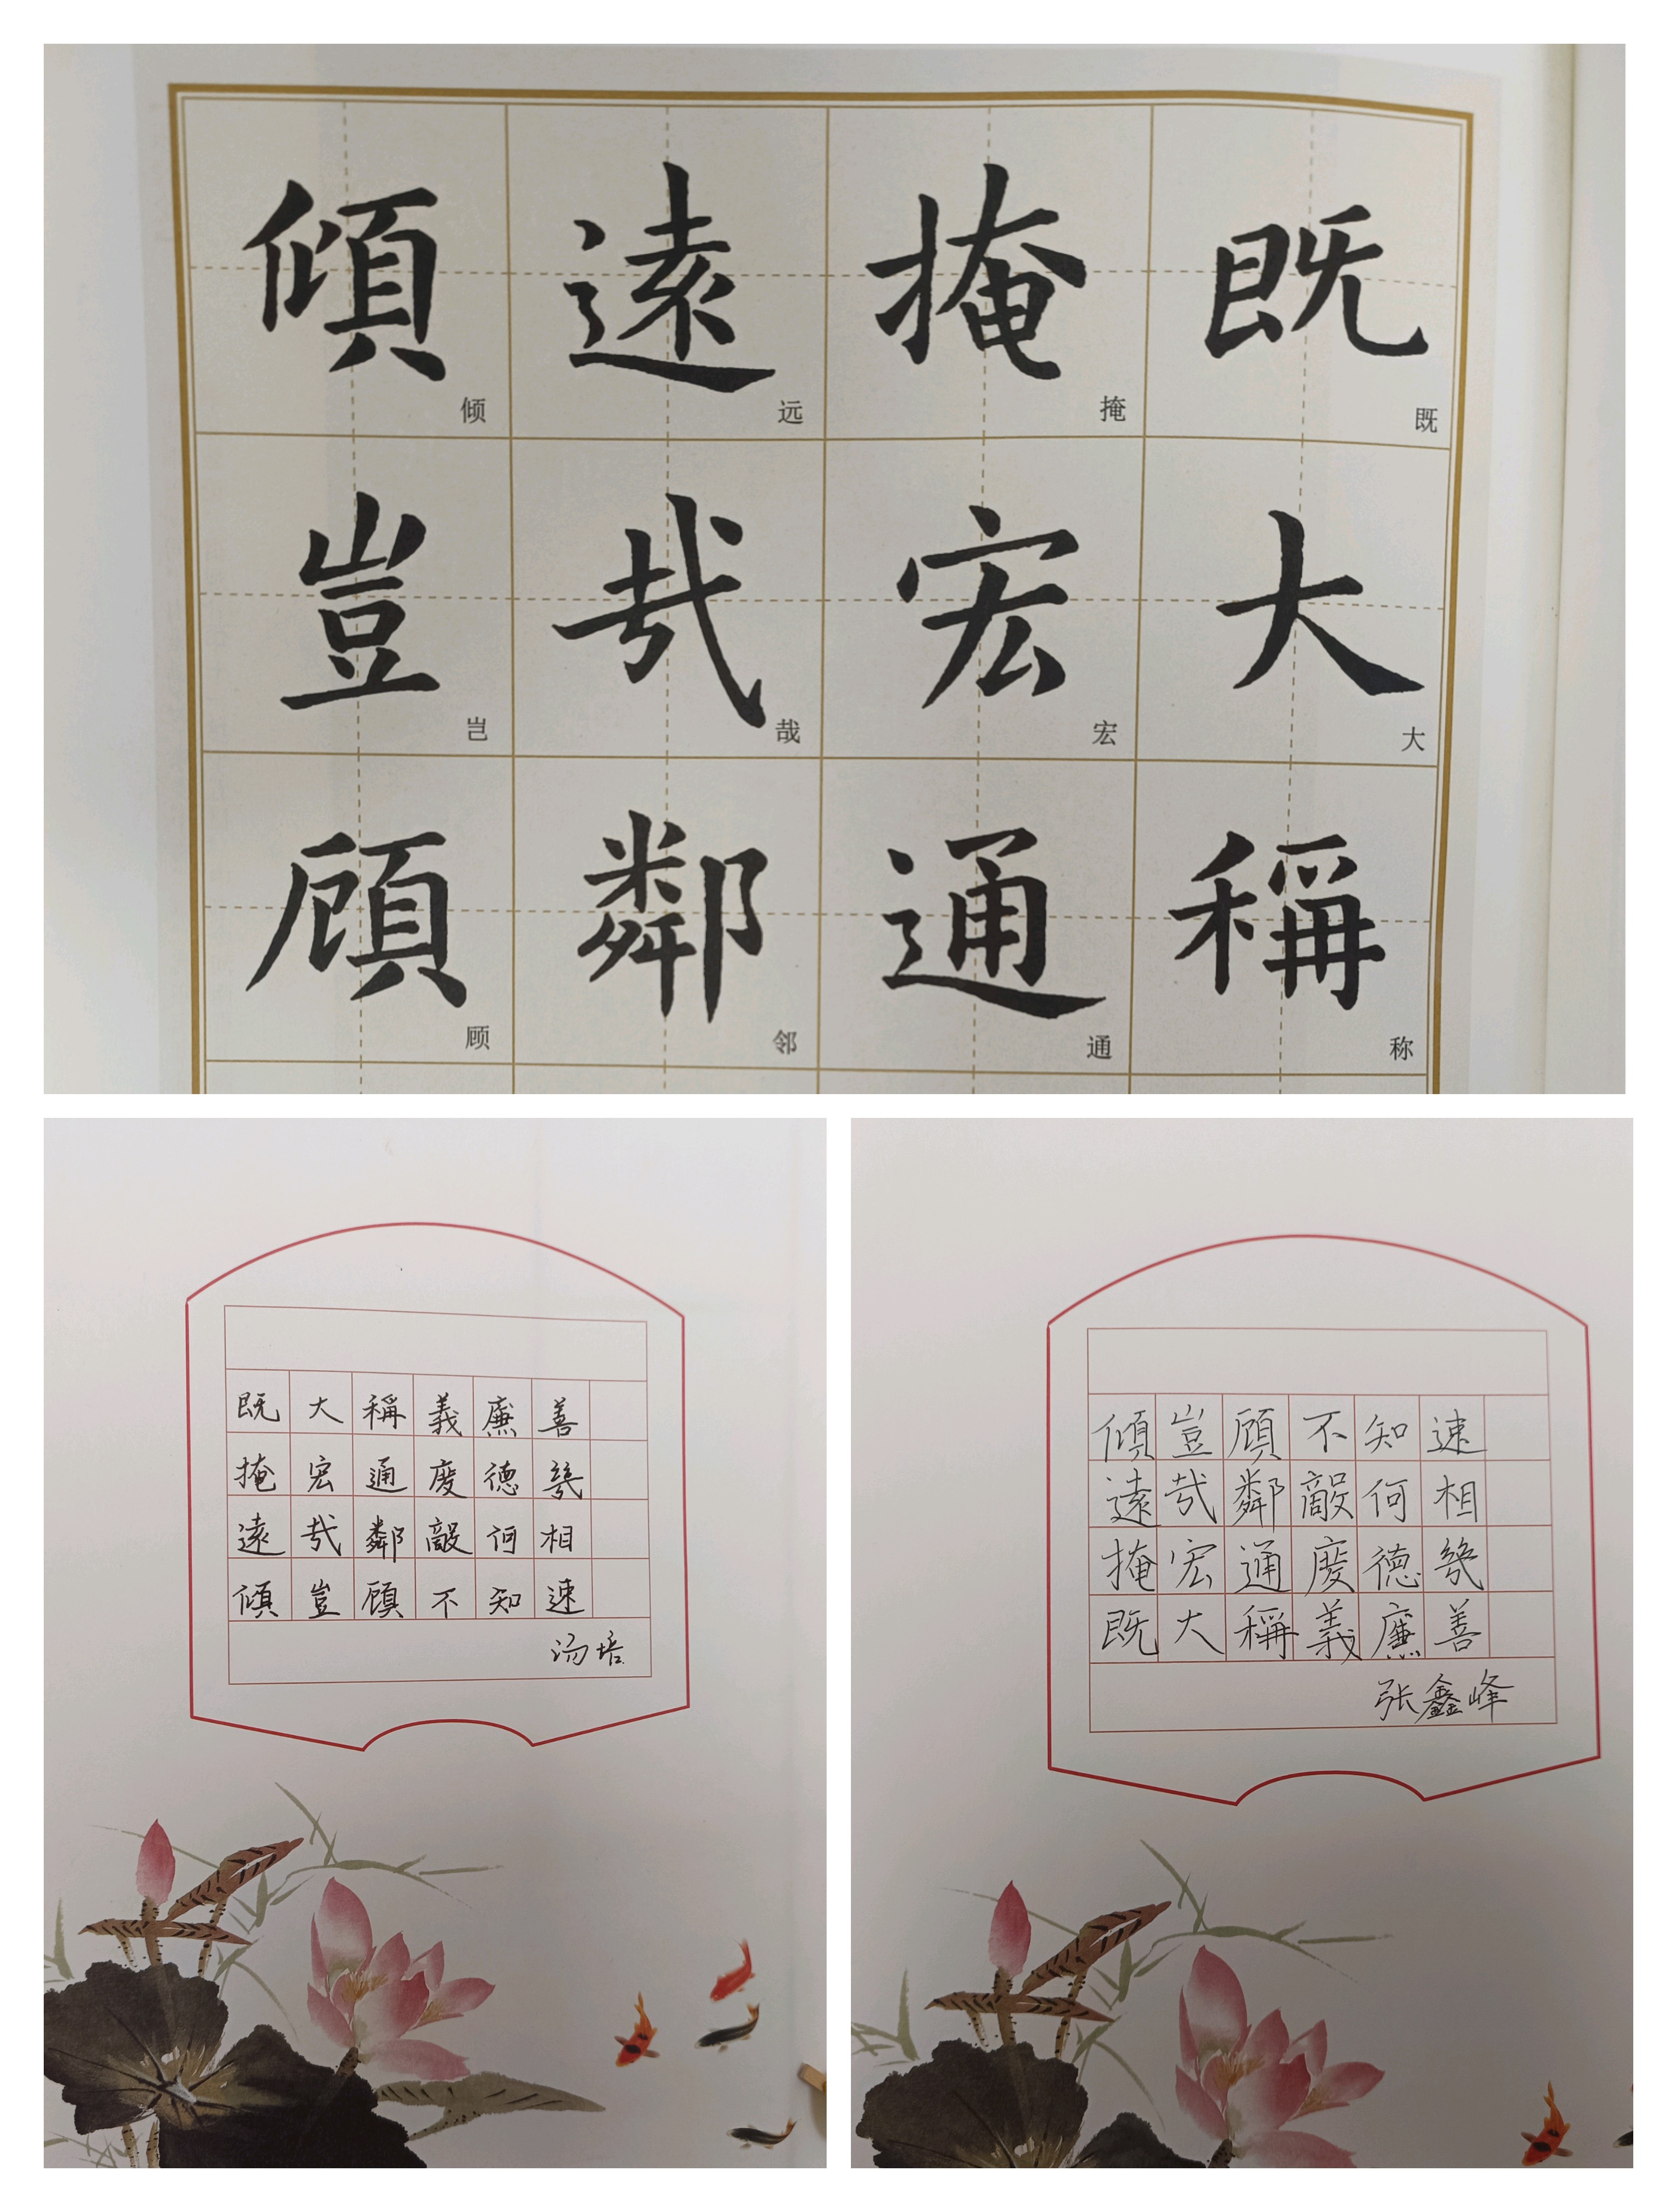 傾 遠 掩 既
倾 远 掩 既
豈 哉 宏 大
岂 哉 宏 大
顧 鄰 通 稱
顾 邻 通 称
既 大 稱 義 廉 善
掩 宏 通 度 德 幾
遠 哉 鄰 敵 何 相
傾 豈 顧 不 知 速
汤培
傾 豈 顧 不 知 速
遠 哉 鄰 敵 何 相
掩 宏 通 度 德 幾
既 大 稱 義 廉 善
张鑫峰